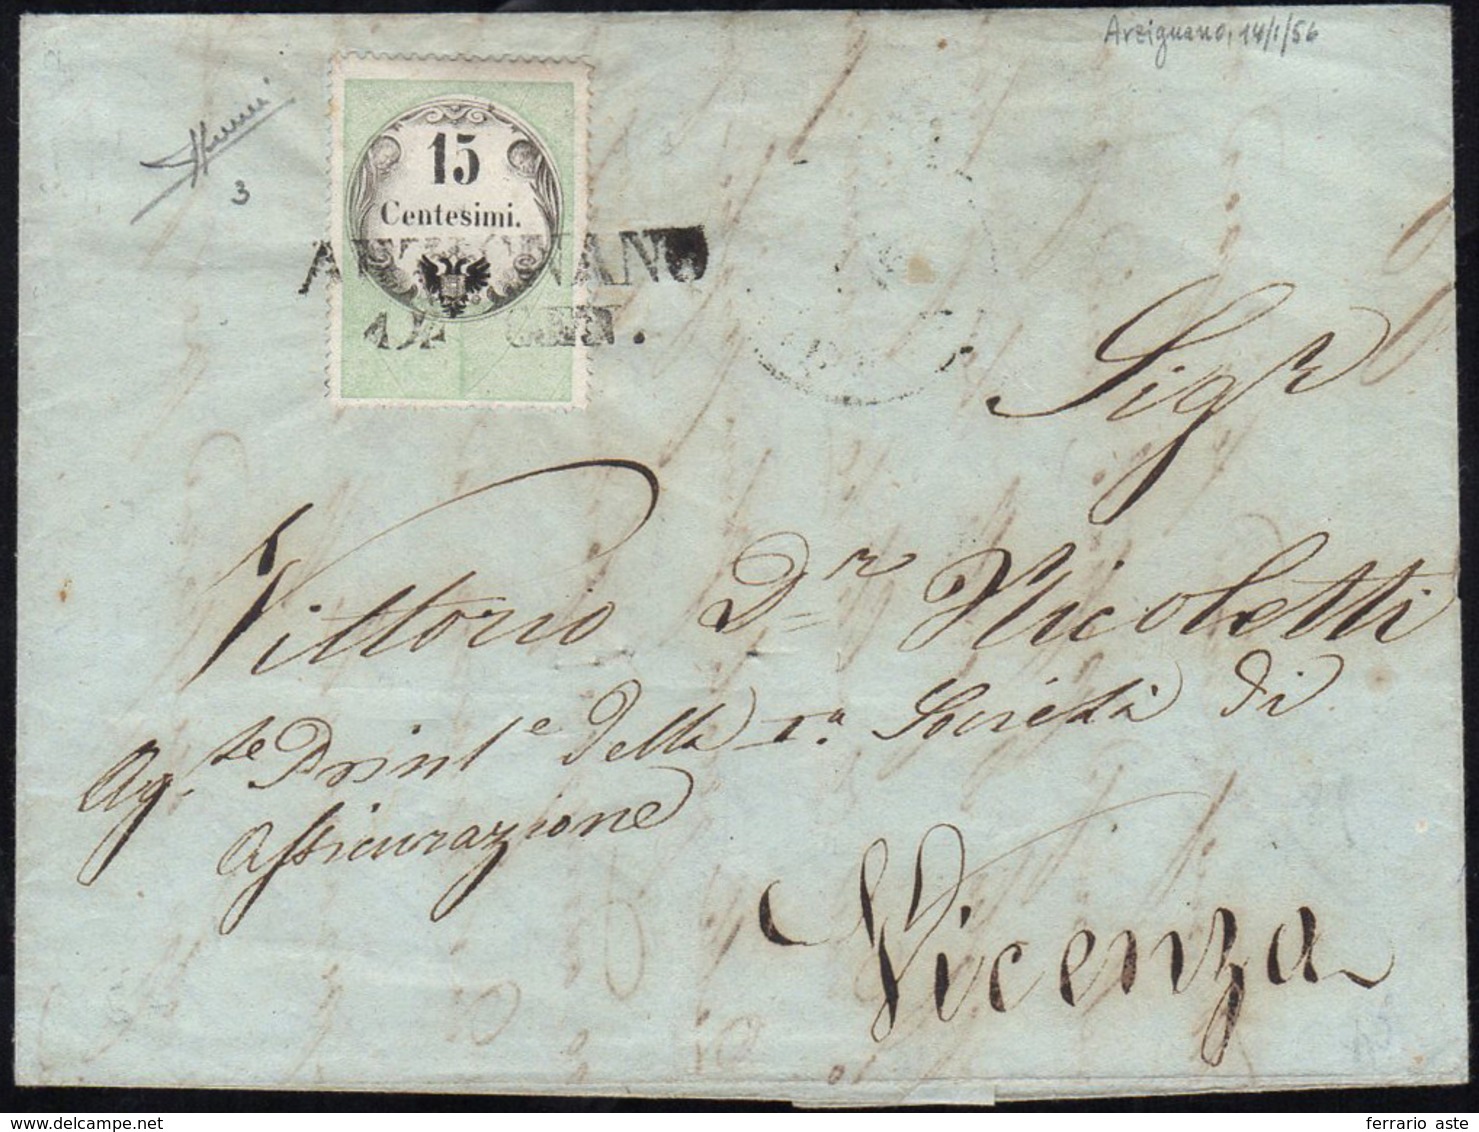 Arzignano, 14/1/56
3
15
Centesimi.
ARZIGNANO
14 GEN.
Sigr
Vittorio Dr Nicoletti
Ag.te Prinle della Ia Società di
Assicurazione
Vicenza
ferrario aste